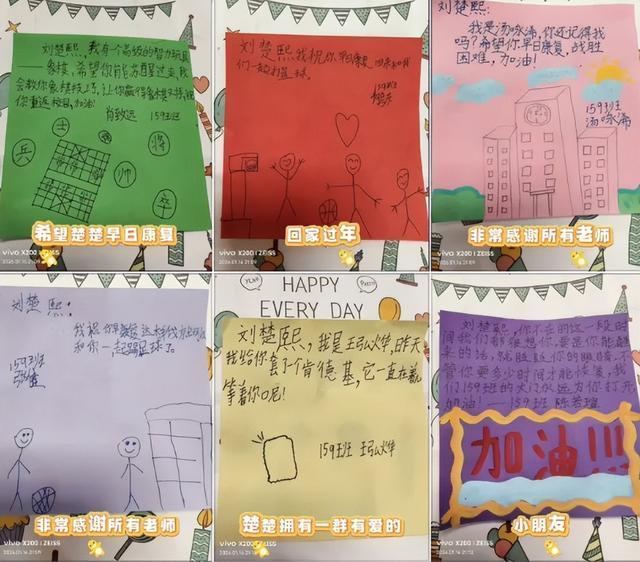 刘楚熙,我有个高级的智力玩具
——象棋,希望你能苏醒过来,我
会教你象棋技巧,让你赢得象棋大师,祝
你重返校园,加油!
肖致远 159班
士
将
兵
帅
卒
希望楚楚早日康复
vivo X200 | ZEISS
刘楚熙我祝你早日康复,回来和我
们一起打篮球。
159班
回家过年
vivo X200 | ZEISS
2026.01.16 21:09
刘楚熙:
我是汤咏浠,你还记得我
吗?希望你早日康复,战胜
困难,加油!
159班
汤咏浠
非常感谢所有老师
vivo X200 | ZEISS
2026.01.16 21:09
刘楚熙:
我祝你早日
和你一起踢足球了。
159班
非常感谢所有老师
vivo X200 | ZEISS
2026.01.16 21:09
HAPPY
EVERY DAY
YEAH
PARTY
刘楚熙,我是王弘烨,昨天
我给你套了个肯德基,它一直在着
等着你口尼!
159班 王弘烨
楚楚拥有一群有爱的
vivo X200 | ZEISS
2026.01.16 21:09
刘楚熙,你不在的这一段时
间我们都很想你,要是你能醒
来的话,就眨眨你的眼睛,不
管你要多少时间才能恢复,我
们159班的大门永远为你打开
加油!——159班 陈若瑄
加油!!!
小朋友
vivo X200 | ZEISS